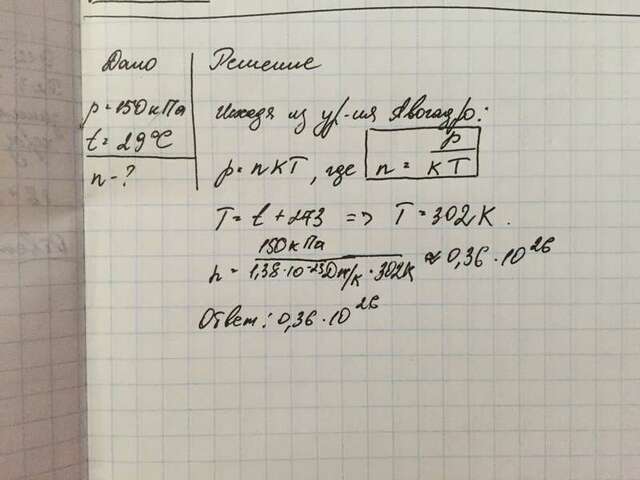 Дано
p = 150 кПа
t = 29°C
n - ?
Решение
Исходя из ур-ия Авогадро:
p = nKT, где n = p / KT
T = t + 273 => T = 302 K.
n = 150 кПа / 1,38·10⁻²³ Дж/К · 302К ≈ 0,36·10²⁶
Ответ: 0,36·10²⁶